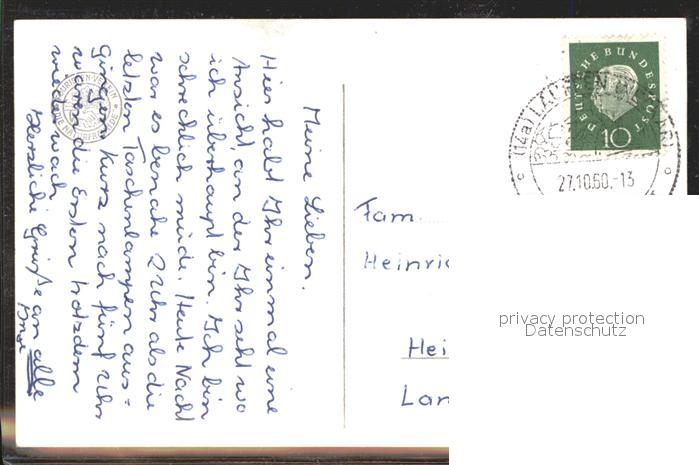 Meine Lieben.
Hier habt Ihr einmal eine
Ansicht, an der Ihr seht wo
ich überhaupt bin. Ich bin
schrecklich müde. Heute Nacht
war es beinahe 2 Uhr als die
letzten Taschenlampen aus=
gingen. Kurz nach fünf Uhr
waren die Ersten trotzdem
wieder wach
Herzliche Grüße an alle
DEUTSCHE BUNDESPOST
10
(14a) LAUFFEN
27.10.60.-13
Fam.
Heinric
Hei
Lan
privacy protection
Datenschutz